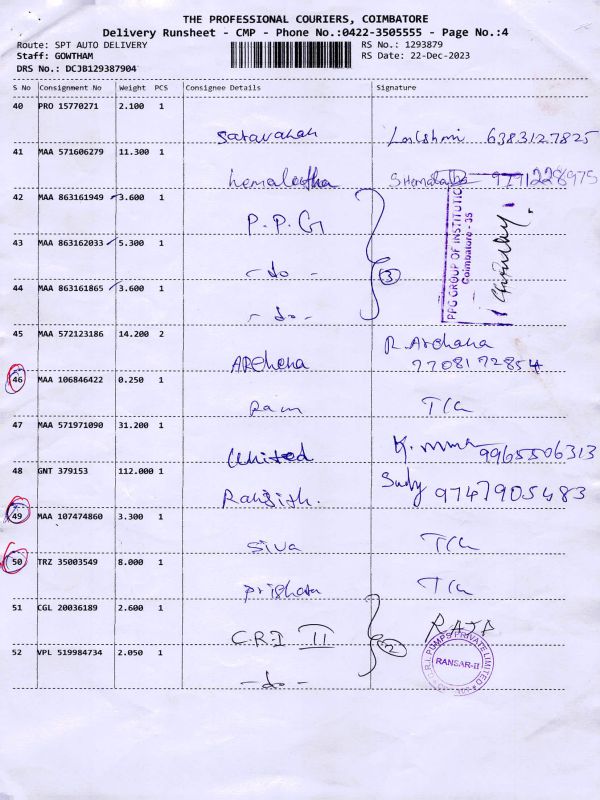 THE PROFESSIONAL COURIERS, COIMBATORE
Delivery Runsheet - CMP - Phone No.:0422-3505555 - Page No.:4
Route: SPT AUTO DELIVERY RS No.: 1293879
Staff: GOWTHAM RS Date: 22-Dec-2023
DRS No.: DCJB129387904
S No Consignment No Weight PCS Consignee Details Signature
40 PRO 15770271 2.100 1
Lakshmi 6383127825
41 MAA 571606279 11.300 1
hemalatha
42 MAA 863161949 3.600 1
P.P.G
43 MAA 863162033 5.300 1
-do-
44 MAA 863161865 3.600 1
-do-
3
PPG GROUP OF INSTITUTIO
Coimbatore - 35
45 MAA 572123186 14.200 2
ARchena R. Archana
7708172854
46 MAA 106846422 0.250 1
Ram
47 MAA 571971090 31.200 1
United 9965506313
48 GNT 379153 112.000 1
Ranjith. 9747905483
49 MAA 107474860 3.300 1
Siva
50 TRZ 35003549 8.000 1
51 CGL 20036189 2.600 1
C.R.I II RAJA
52 VPL 519984734 2.050 1
-do-
2
C.R.I. PUMPS PRIVATE LIMITED
RANSAR-II